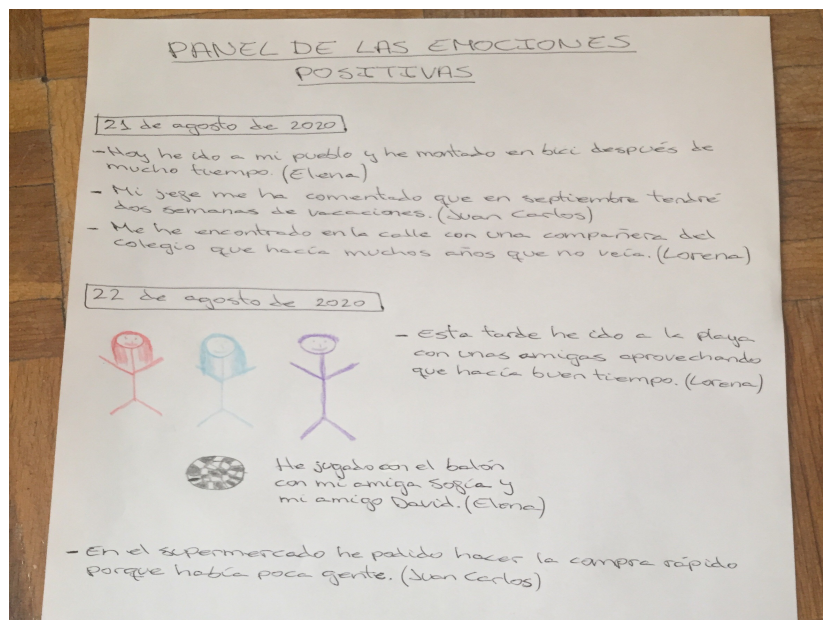 PANEL DE LAS EMOCIONES
POSITIVAS
21 de agosto de 2020
- Hoy he ido a mi pueblo y he montado en bici después de
mucho tiempo. (Elena)
- Mi jefe me ha comentado que en septiembre tendré
dos semanas de vacaciones. (Juan Carlos)
- Me he encontrado en la calle con una compañera del
colegio que hacía muchos años que no veía. (Lorena)
22 de agosto de 2020
- Esta tarde he ido a la playa
con unas amigas aprovechando
que hacía buen tiempo. (Lorena)
He jugado con el balón
con mi amiga Sofía y
mi amigo David. (Elena)
- En el supermercado he podido hacer la compra rápido
porque había poca gente. (Juan Carlos)